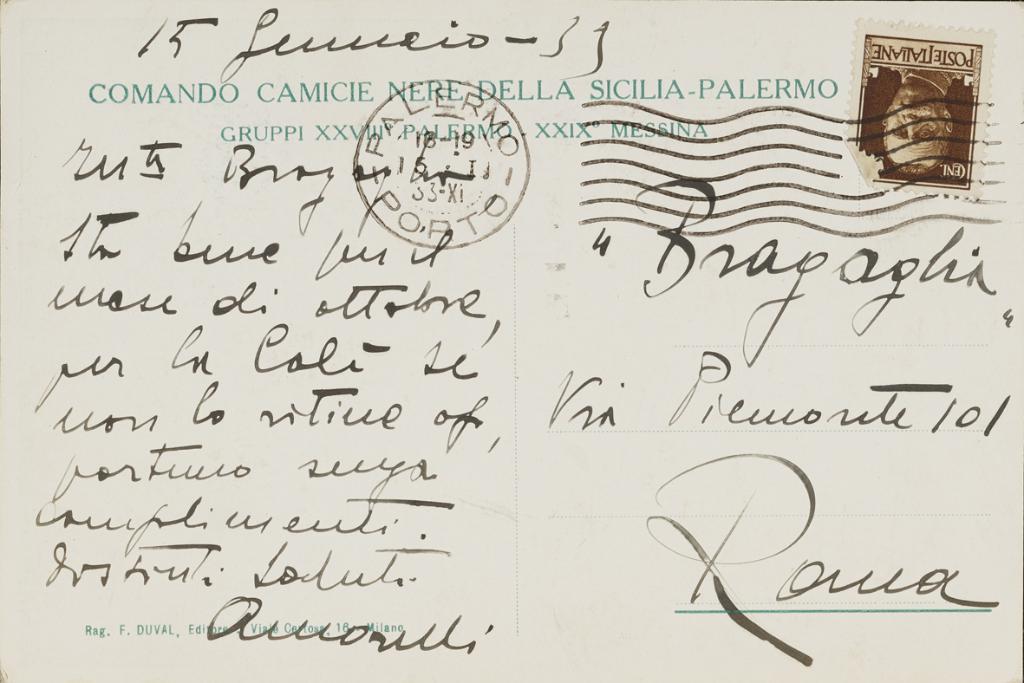 15 Gennaio - 33
COMANDO CAMICIE NERE DELLA SICILIA-PALERMO
GRUPPI XXVIII° PALERMO - XXIX° MESSINA
Bragaglia
Sta bene per il
mese di ottobre,
per la Calì se
non lo ritine op,
portuno senza
complimenti.
Distinti saluti.
Amorelli
Rag. F. DUVAL, Editore - Viale Certosa, 16 - Milano
PALERMO
18-19
33-XI
PORTO
POSTE ITALIANE
CENT
"Bragaglia"
Via Piemonte 101
Roma